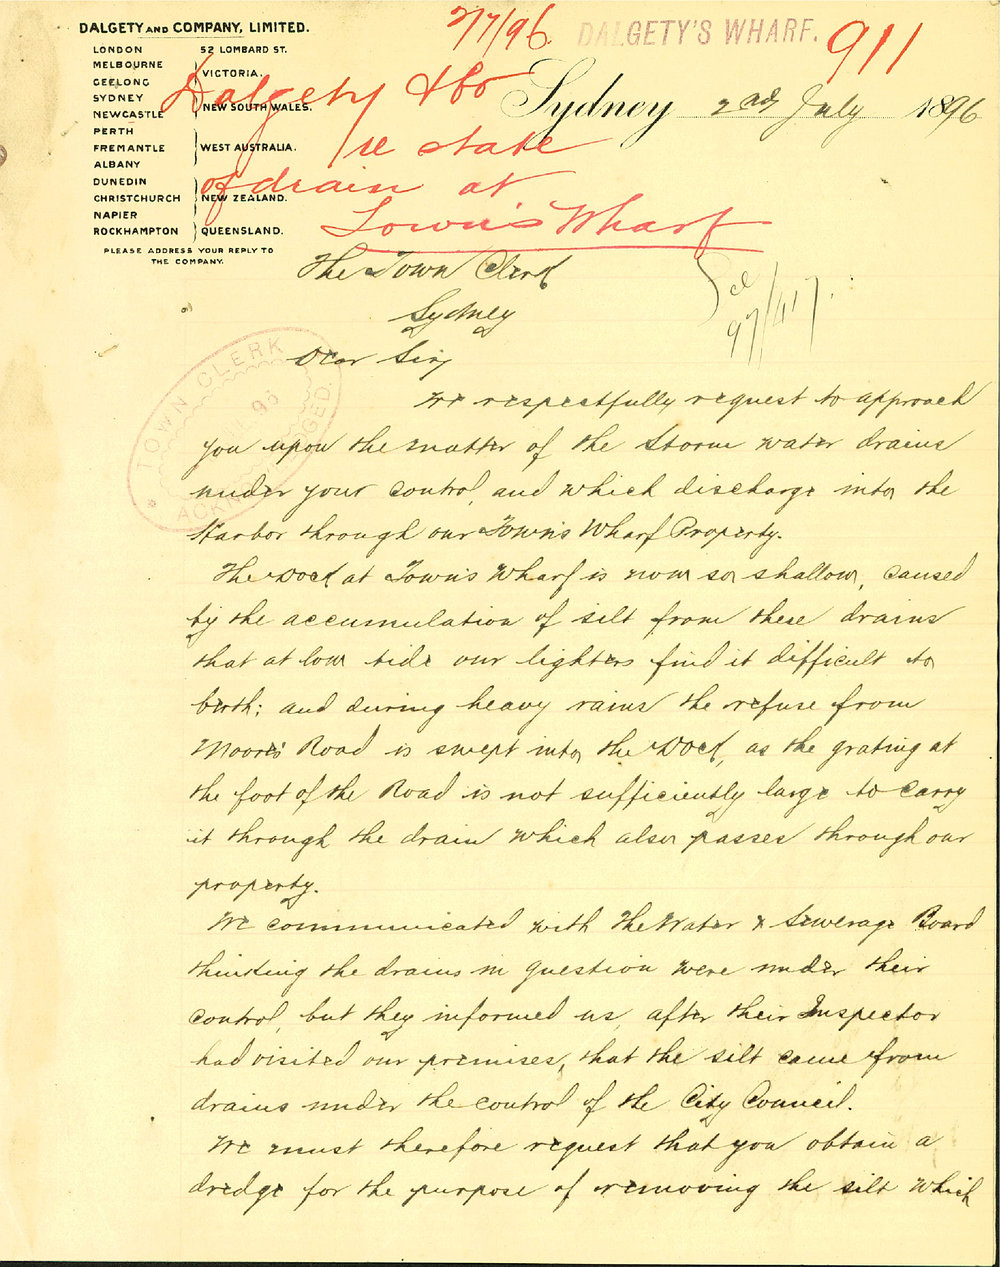 DALGETY AND COMPANY, LIMITED.
LONDON 52 LOMBARD ST.
MELBOURNE
GEELONG VICTORIA.
SYDNEY
NEWCASTLE NEW SOUTH WALES.
PERTH
FREMANTLE WEST AUSTRALIA.
ALBANY
DUNEDIN
CHRISTCHURCH NEW ZEALAND.
NAPIER
ROCKHAMPTON QUEENSLAND.
PLEASE ADDRESS YOUR REPLY TO
THE COMPANY.
2/7/96
DALGETY'S WHARF.
911
Sydney 2nd July 1896
Dalgety & Co
re state
of drain at
Town's Wharf
See
97/417.
TOWN CLERK
96
The Town Clerk
Sydney
Dear Sir,
We respectfully request to approach
you upon the matter of the Storm water drains
under your control, and which discharge into the
Harbor through our Town's Wharf Property.
The Dock at Town's Wharf is now so shallow, caused
by the accumulation of silt from these drains
that at low tide our lighters find it difficult to
birth; and during heavy rains the refuse from
Moore's Road is swept into the Dock, as the grating at
the foot of the Road is not sufficiently large to carry
it through the drain which also passes through our
property.
We communicated with the Water & Sewerage Board
thinking the drains in question were under their
control, but they informed us, after their Inspector
had visited our premises, that the silt came from
drains under the control of the City Council.
We must therefore request that you obtain a
dredge for the purpose of removing the silt which